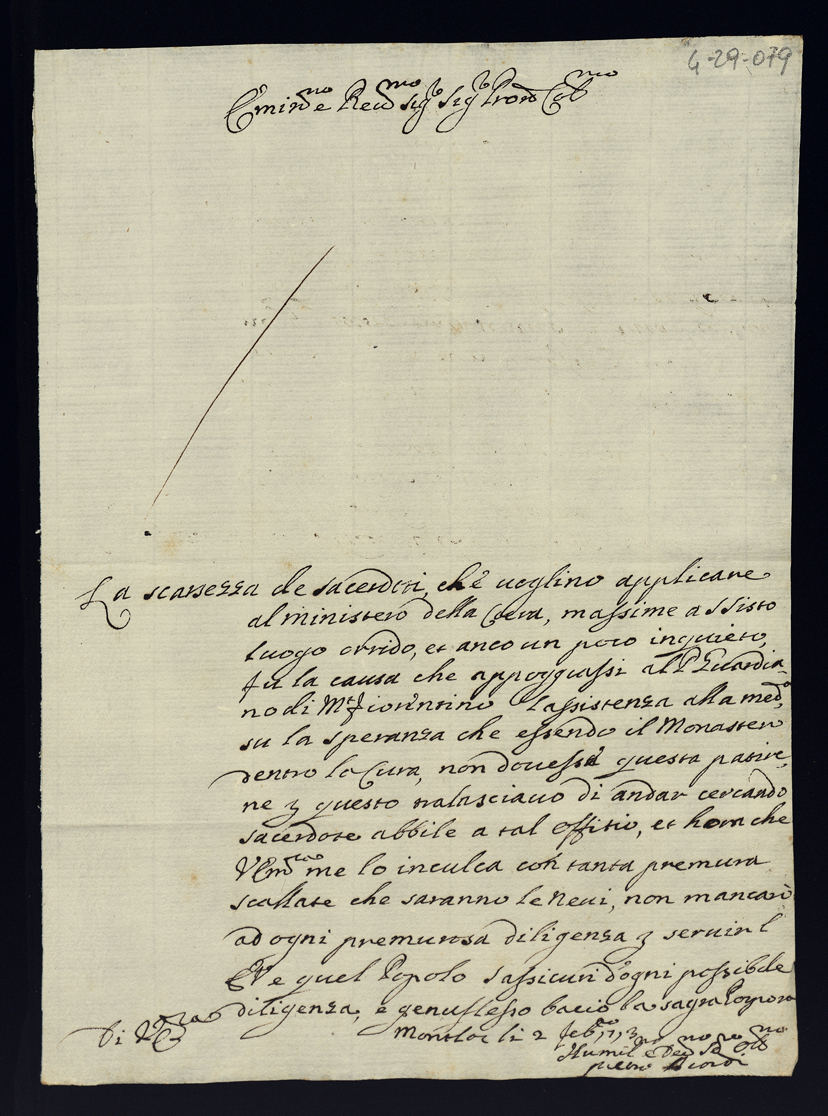 4-29-079
Emin.mo e Reu.mo Sig.r Sig.r Pron Col.mo
La scarsezza de sacerdoti, che voglino applicare
al ministero della Cura, massime a ssisto
luogo orrido, et anco un poco inquieto,
fu la causa che appoggiassi al P. Guardia-
no di M.te fiorentino l'assistenza alla med.a
su la speranza che essendo il Monastero
dentro la Cura, non douesse questa patire,
ne p questo tralasciauo di andar cercando
sacerdote abbile a tal offitio, et hora che
V Em.za me lo inculca con tanta premura
scallate che saranno le neui, non mancarò
ad ogni premurosa diligenza p seruir l
EV e quel Popolo s'assicuri d'ogni possibile
diligenza, e genuflesso bacio la sagra Porpora
Di V.ra Em.za
li 2 feb.ro
Humil.mo e Deu.mo Se.re Obl.mo
pietro